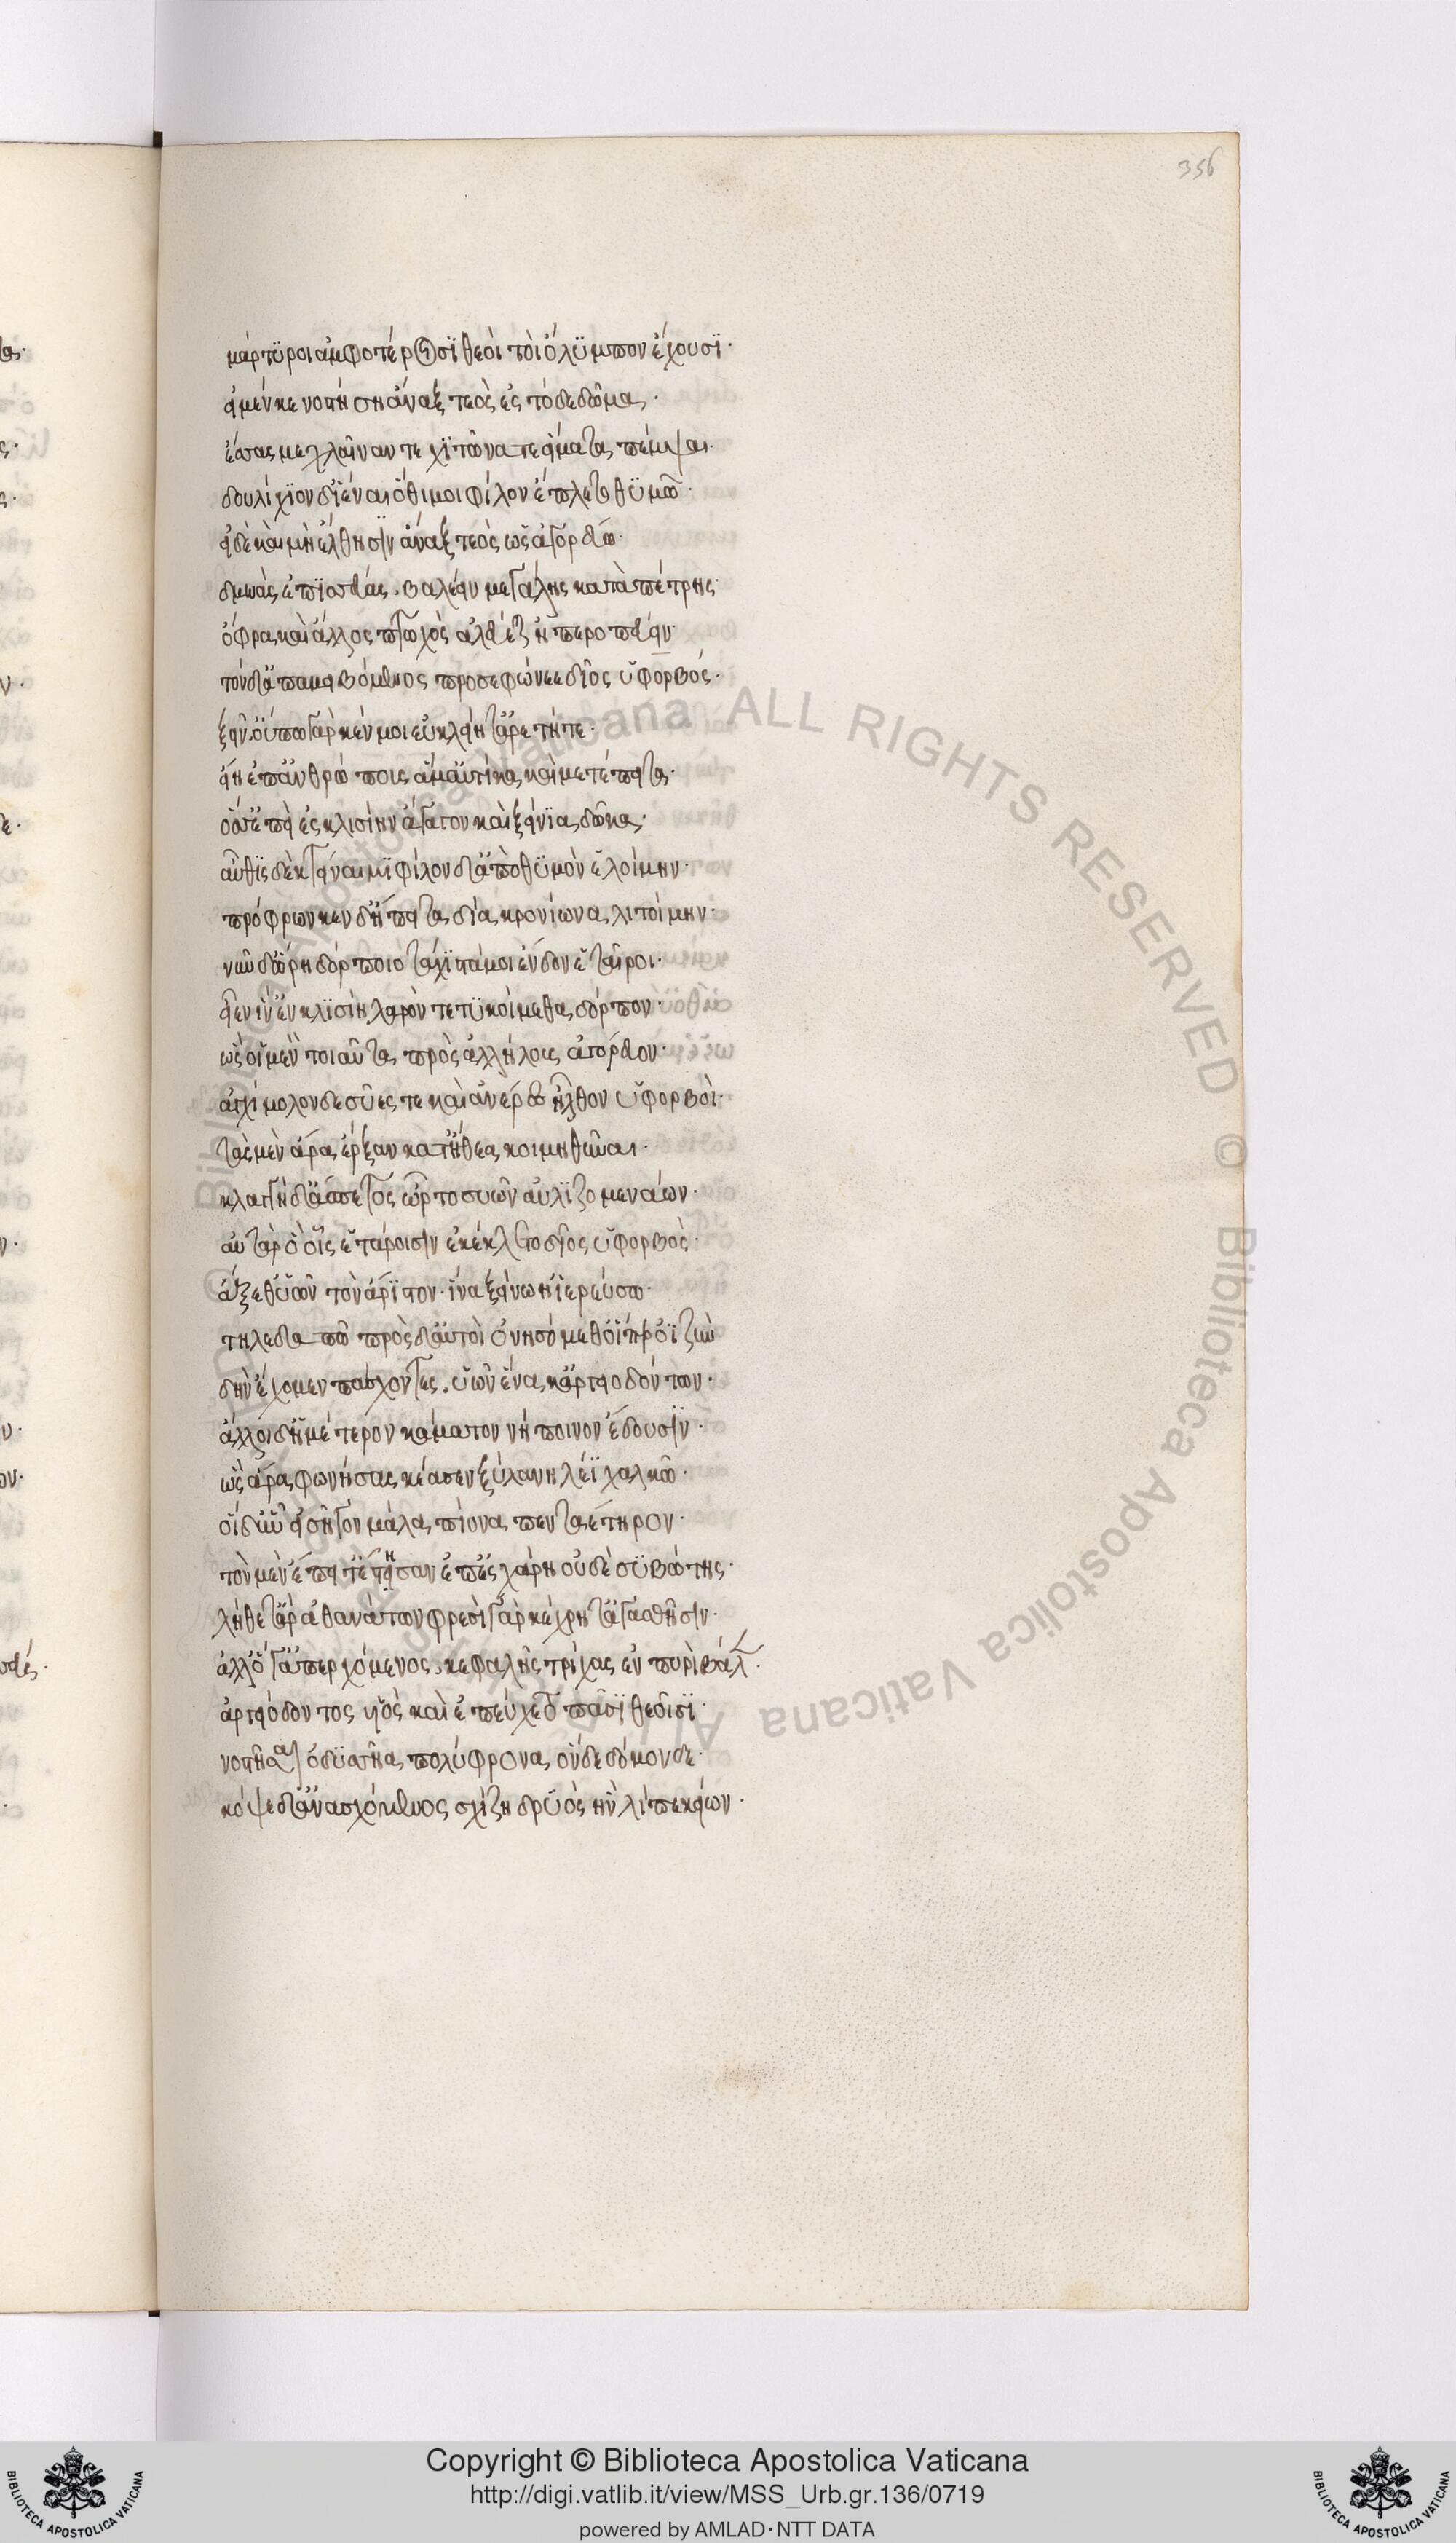 356
μάρτϋροι ἀμφοτέροισϊ θεοὶ τοὶ ὄλϋμπον ἔχουσϊ·
εἰ μέν κε νοστήσῃ ἄναξ τεὸς ἐς τόδε δῶμα·
ἕσσας με χλαῖναν τε χϊτῶνα τε εἵματα πέμψαι·
δουλίχϊον δ' ἰέναι ὅθι μοι φίλον ἔπλετο θϋμῶ·
εἰ δέ και μὴ ἔλθησϊν ἄναξ τεὸς ὡς ἀγορεύω·
δμωὰς ἐπϊσσεύας. βαλέειν μεγάλης κατὰ πέτρης·
ὄφρα καὶ ἄλλος πτωχὸς ἀλεύεται ἠπεροπεύειν·
τὸν δ' ἀπαμειβόμενος προσεφώνεε δῖος ὑφορβός·
ξεῖν οὕτω γὰρ κέν μοι εὐκλείη τ' ἀρετή τε·
εἴη ἐπ' ἀνθρώποις ἅμα τ' αὐτίκα καὶ μετέπειτα·
ὅς σ' ἐπεὶ ἐς κλισίην ἄγαγον καὶ ξείνϊα δῶκα·
αὖθϊς δὲ κτείναιμϊ φίλον δ' ἀπὸ θϋμὸν ἑλοίμην·
πρόφρων κεν δὴ ἔπειτα δία κρονίωνα λιτοίμην·
νῦν δ' ὥρη δόρποιο τάχϊστά μοι ἔνδον ἑταῖροι·
εἶεν ἵν' ἐν κλϊσίῃ λαρὸν τετϋκοίμεθα δόρπον·
ὣς οἱ μὲν τοιαῦτα πρὸς ἀλλήλους ἀγόρευον·
ἀγχίμολον δὲ σύες τε καὶ ἀνέρες ἦλθον ὑφορβοὶ·
τὰς μὲν ἄρα ἔρξαν κατ' ἤθεα κοιμηθῆναι·
κλαγγὴ δ' ἄσπετος ὦρτο συῶν αὐλϊζομενάων·
αὐτὰρ ὁ οἷς ἑτάροισιν ἐκέκλετο δῖος ὑφορβὸς·
ἄξεθ' ὑῶν τὸν ἄρϊστον· ἵνα ξείνω ἱερεύσω·
τηλεδαπῶ πρὸς δ' αὐτοὶ ὀνησόμεθ' οἵπερ ὀϊζὺν
δὴν ἔχομεν πάσχοντες. ὑῶν ἕνεκ' ἀργειοδόντων·
ἄλλοι δ' ἡμέτερον κάματον νήποινον ἔδουσϊν·
ὣς ἄρα φωνήσας κέασεν ξύλα νηλέϊ χαλκῶ·
οἱ δ' ὗν εἰσῆγον μάλα πίονα πενταέτηρον·
τὸν μὲν ἔπειτ' ἔστησαν ἐπ' ἐσχάρῃ οὐδὲ σϋβώτης·
λήθετ' ἄρ' ἀθανάτων φρεσὶ γὰρ κέχρητ' ἀγαθῇσιν·
ἀλλ' ὅ γ' ἀπερχόμενος. κεφαλῆς τρίχας ἐν πυρὶ βάλλ·
ἀργειόδοντος ὑὸς καὶ ἐπεύχετο πᾶσϊ θεοῖσϊ·
νοστῆσαι ὀδϋσσῆα πολύφρονα ὅνδε δόμονδε·
κόψε δ' ἀνασχόμενος σχίζῃ δρϋὸς ἣν λίπε κείων·
Copyright © Biblioteca Apostolica Vaticana
http://digi.vatlib.it/view/MSS_Urb.gr.136/0719
powered by AMLAD·NTT DATA